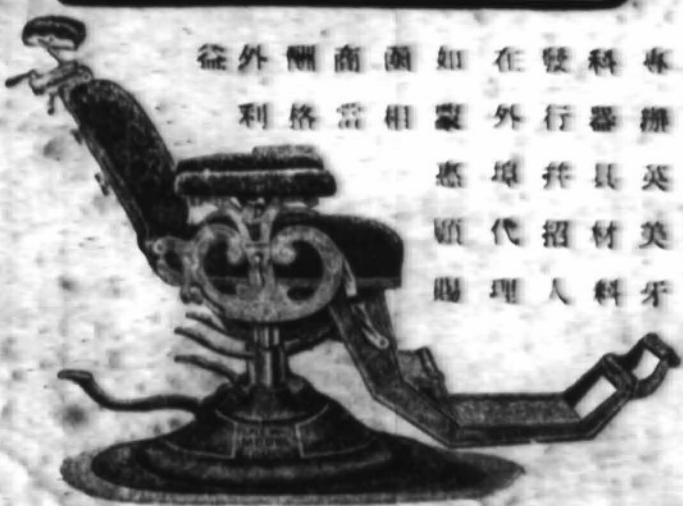 專辦英美牙
科器具材料
發行并招人
在外埠代理
如蒙惠顧賜
函相
商當
酬格
外利
益